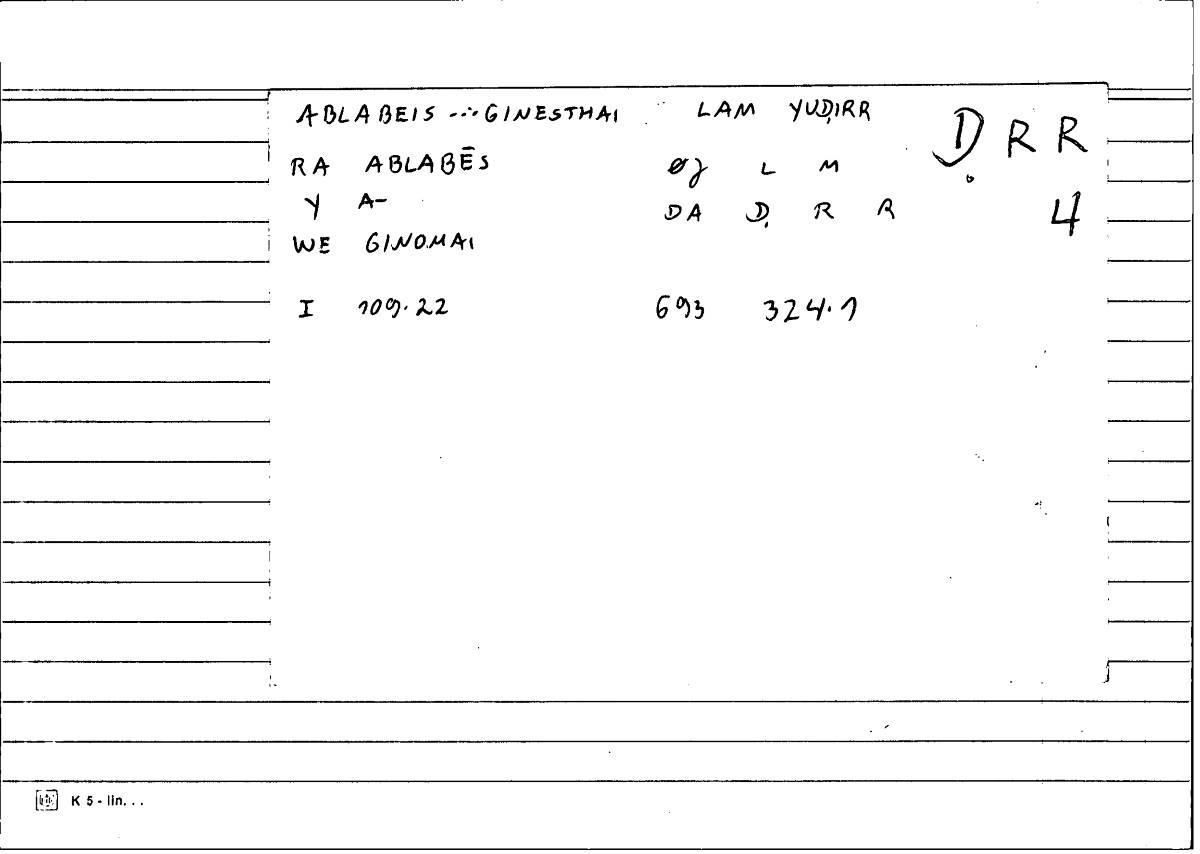 ABLABEIS ... GINESTHAI LAM YUḌIRR
ḌRR
RA ABLABĒS ØJ L M
Y A- DA Ḍ R R
4
WE GINOMAI
I 109.22 693 324.1
K 5 - lin. . .